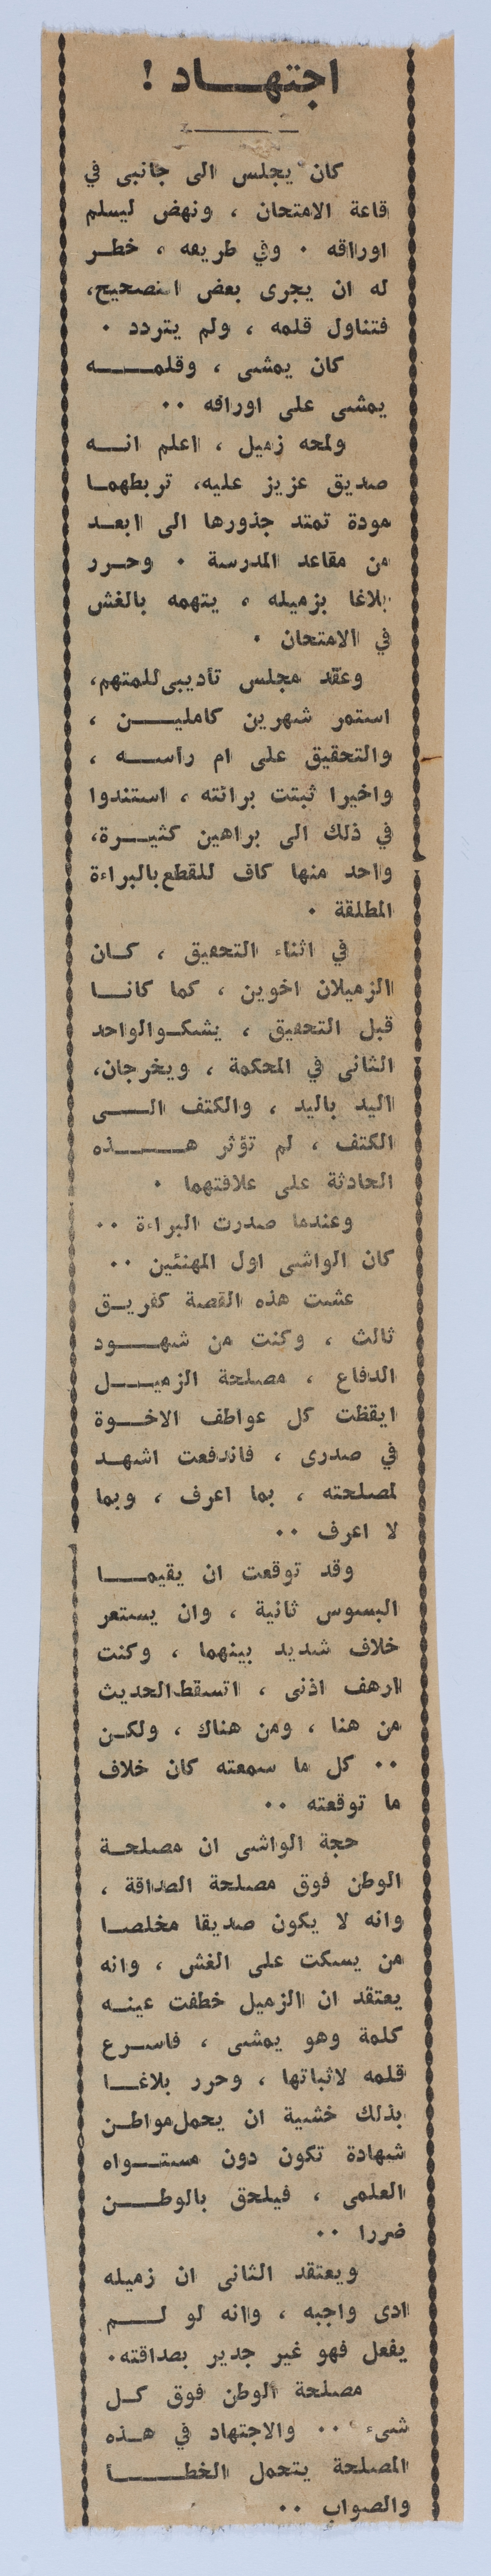 اجتهـــاد !
كان يجلس الى جانبى في
قاعة الامتحان ، ونهض ليسلم
اوراقه . وفي طريقه ، خطــر
له ان يجرى بعض التصحيح،
فتناول قلمه ، ولم يتردد .
كان يمشى ، وقلمـــــه
يمشى على اوراقه ..
ولمحه زميل ، اعلم انــه
صديق عزيز عليه، تربطهمـا
مودة تمتد جذورها الى ابعــد
من مقاعد المدرسة . وحــرر
بلاغا بزميله ، يتهمه بالغش
في الامتحان .
وعقد مجلس تاديبى للمتهم،
استمر شهرين كامليـــن ،
والتحقيق على ام راســـه ،
واخيرا ثبتت برائته ، استندوا
في ذلك الى براهين كثيــرة،
واحد منها كاف للقطع بالبراءة
المطلقة .
في اثناء التحقيق ، كــان
الزميلان اخوين ، كما كانـــا
قبل التحقيق ، يشكـو الواحد
الثانى في المحكمة ، ويخرجان،
اليد باليد ، والكتف الـــى
الكتف ، لم تؤثر هـــــذه
الحادثة على علاقتهما .
وعندما صدرت البراءة ..
كان الواشى اول المهنئين ..
عشت هذه القصة كفريــق
ثالث ، وكنت من شهــــود
الدفاع ، مصلحة الزميــــل
ايقظت كل عواطف الاخــوة
في صدرى ، فاندفعت اشهــد
لمصلحته ، بما اعرف ، وبما
لا اعرف ..
وقد توقعت ان يقيمـــا
البسوس ثانية ، وان يستعر
خلاف شديد بينهما ، وكنت
ارهف اذنى ، اتسقط الحديث
من هنا ، ومن هناك ، ولكـن
.. كل ما سمعته كان خلاف
ما توقعته ..
حجة الواشى ان مصلحــة
الوطن فوق مصلحة الصداقة ،
وانه لا يكون صديقا مخلصــا
من يسكت على الغش ، وانه
يعتقد ان الزميل خطفت عينــه
كلمة وهو يمشى ، فاســرع
قلمه لاثباتها ، وحرر بلاغــا
بذلك خشية ان يحمل مواطـن
شهادة تكون دون مستـــواه
العلمى ، فيلحق بالوطــــن
ضررا ..
ويعتقد الثانى ان زميله
ادى واجبه ، وانه لو لـــم
يفعل فهو غير جدير بصداقته.
مصلحة الوطن فوق كــل
شىء .. والاجتهاد في هــذه
المصلحة يتحمل الخطــــأ
والصواب ..